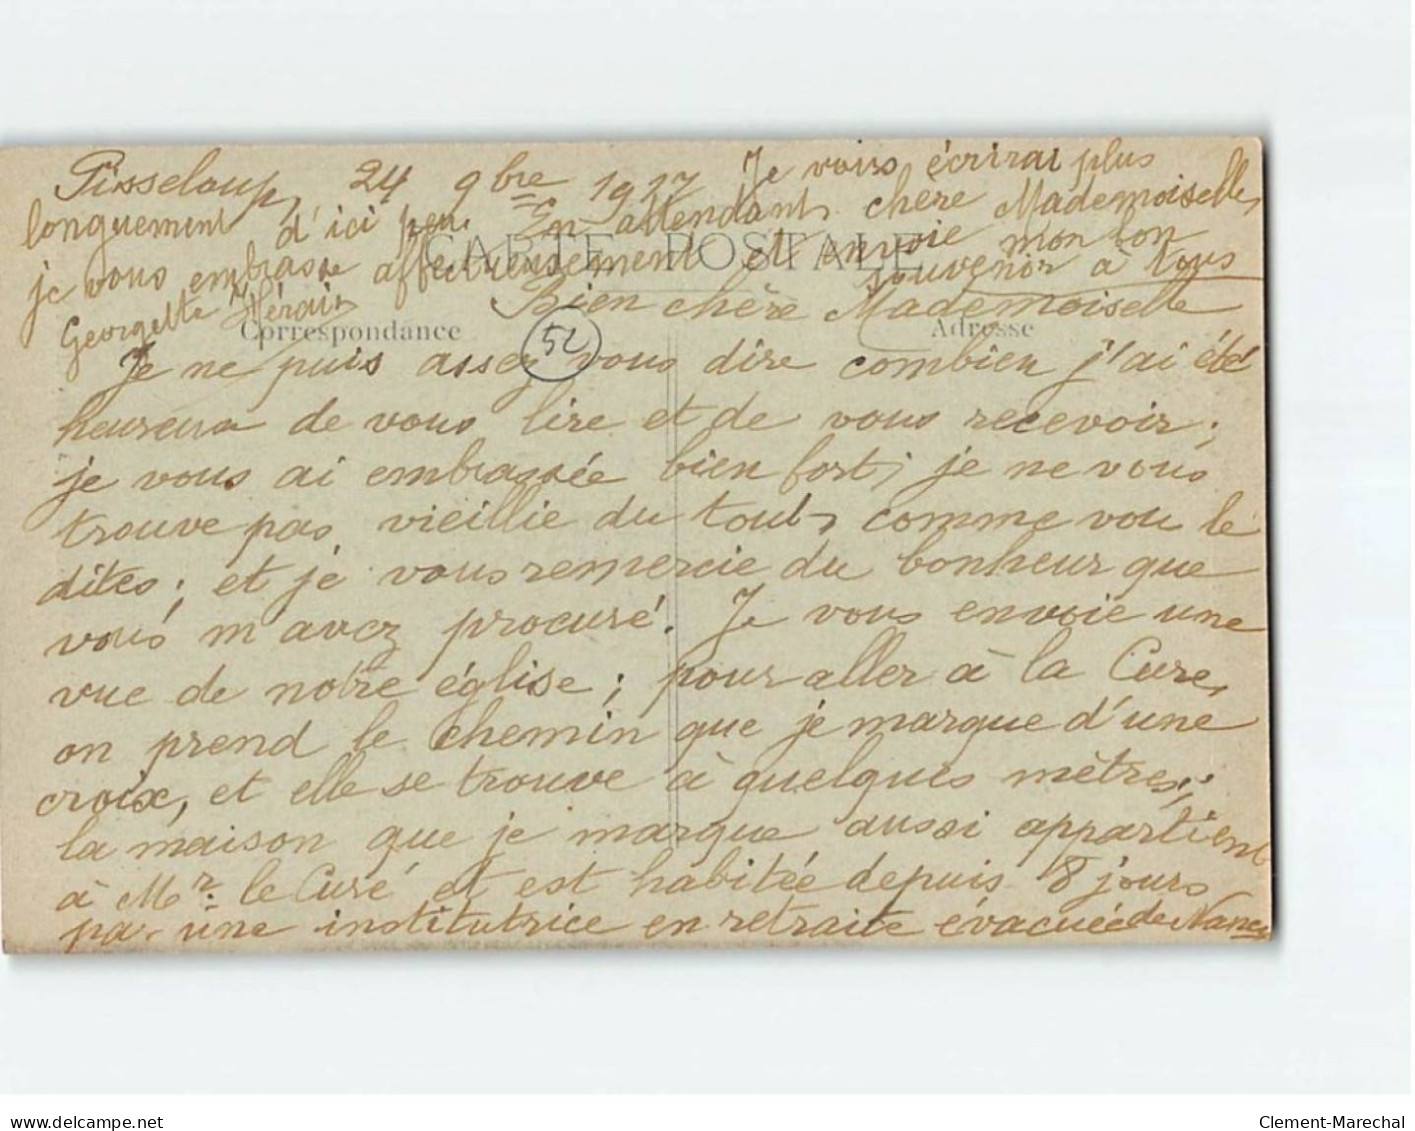 Pisseloup, 24 9bre 1917
Je vous écrirai plus
longuement d'ici peu. En attendant, chère Mademoiselle,
je vous embrasse affectueusement et envoie mon bon
souvenir à tous
Georgette Hérain
CARTE POSTALE
Bien chère Mademoiselle
Correspondance
Adresse
52
Je ne puis assez vous dire combien j'ai été
heureuse de vous lire et de vous recevoir;
je vous ai embrassée bien fort; je ne vous
trouve pas vieillie du tout, comme vou le
dites; et je vous remercie du bonheur que
vous m'avez procuré. Je vous envoie une
vue de notre église; pour aller à la Cure,
on prend le chemin que je marque d'une
croix, et elle se trouve à quelques mètres;
la maison que je marque aussi appartient
à Mr. le Curé et est habitée depuis 8 jours
par une institutrice en retraite évacuée de Nancy
www.delcampe.net
Clement-Marechal